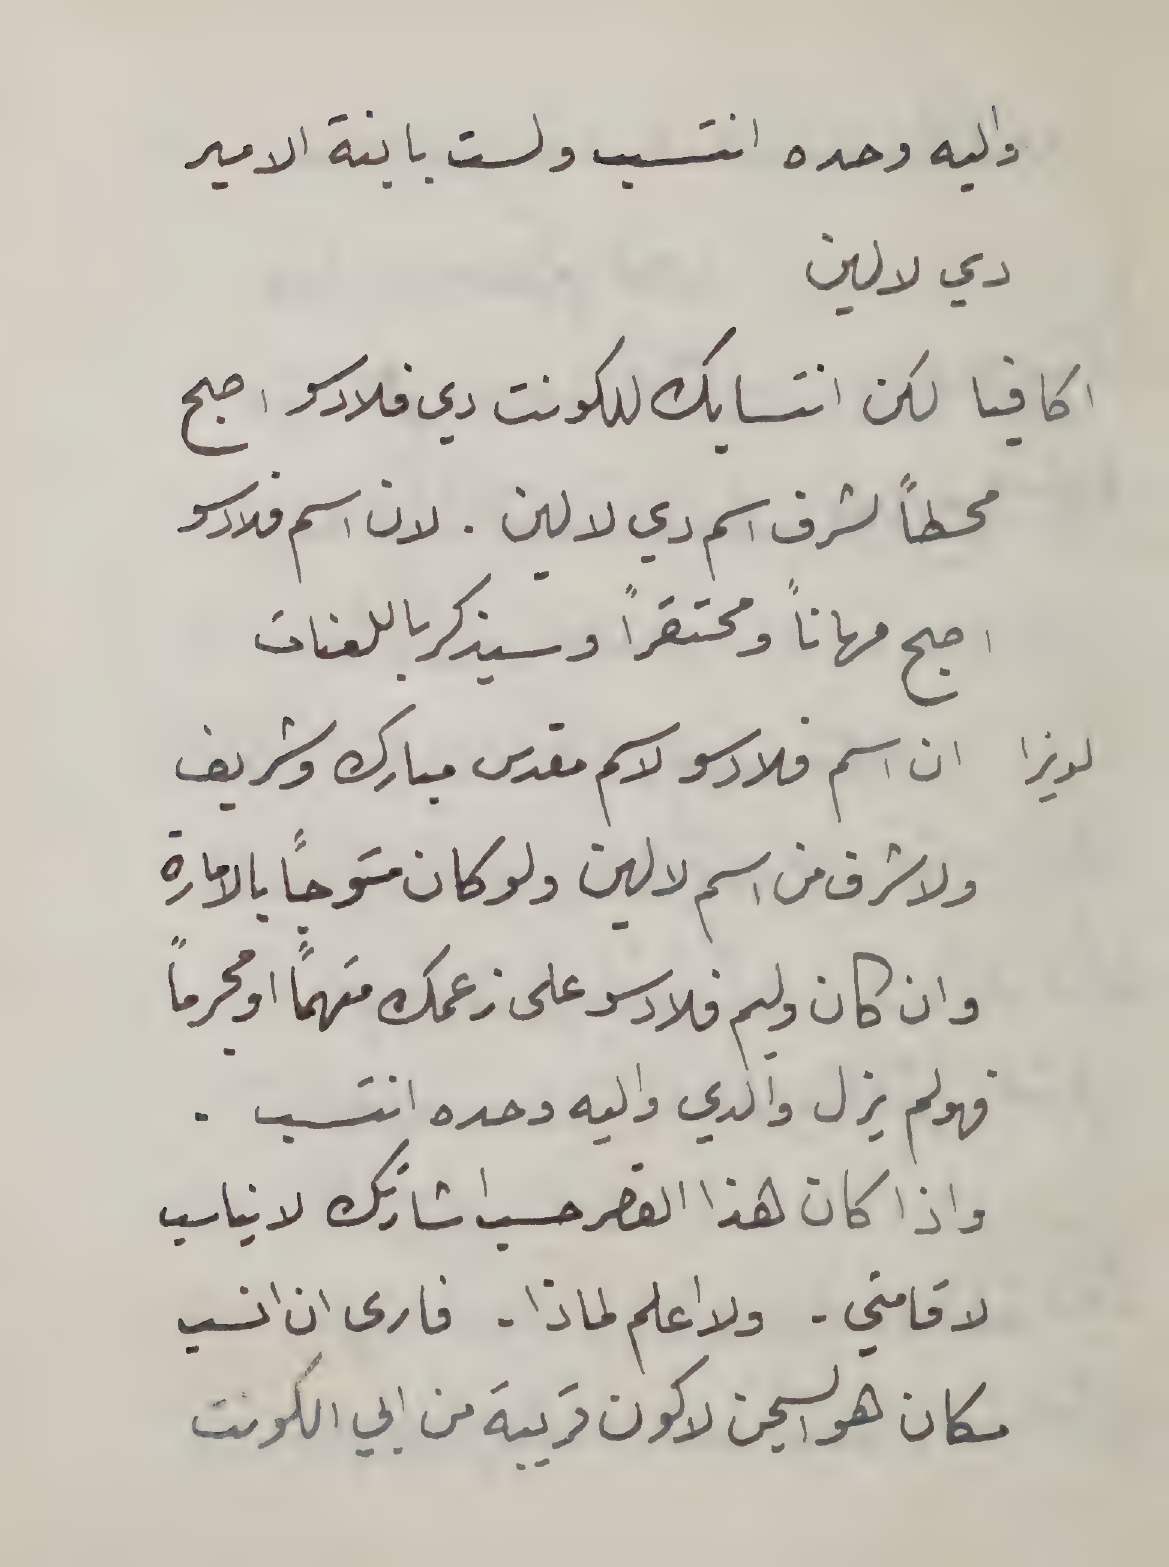 واليه وحده انتسب ولست بابنة الامير
دي لالين
اكافيا لكن انتسابك للكونت دي فلادسو اصبح
محطاً لشرف اسم دي لالين . لان اسم فلادسو
اصبح مهاناً ومحتقراً وسيذكر باللعنات
لويزا ان اسم فلادسو لاسم مقدس مبارك وشريف
ولاشرف من اسم لالين ولو كان متوجاً بالامارة
وان كان وليم فلادسو على زعمك متهماً او مجرماً
فهو لم يزل والدي واليه وحده انتسب .
واذا كان هذا القصر حسب اشارتك لا يناسب
لاقامتي - ولا اعلم لماذا - فارى ان انسب
مكان هو السجن لاكون قريبة من ابي الكونت